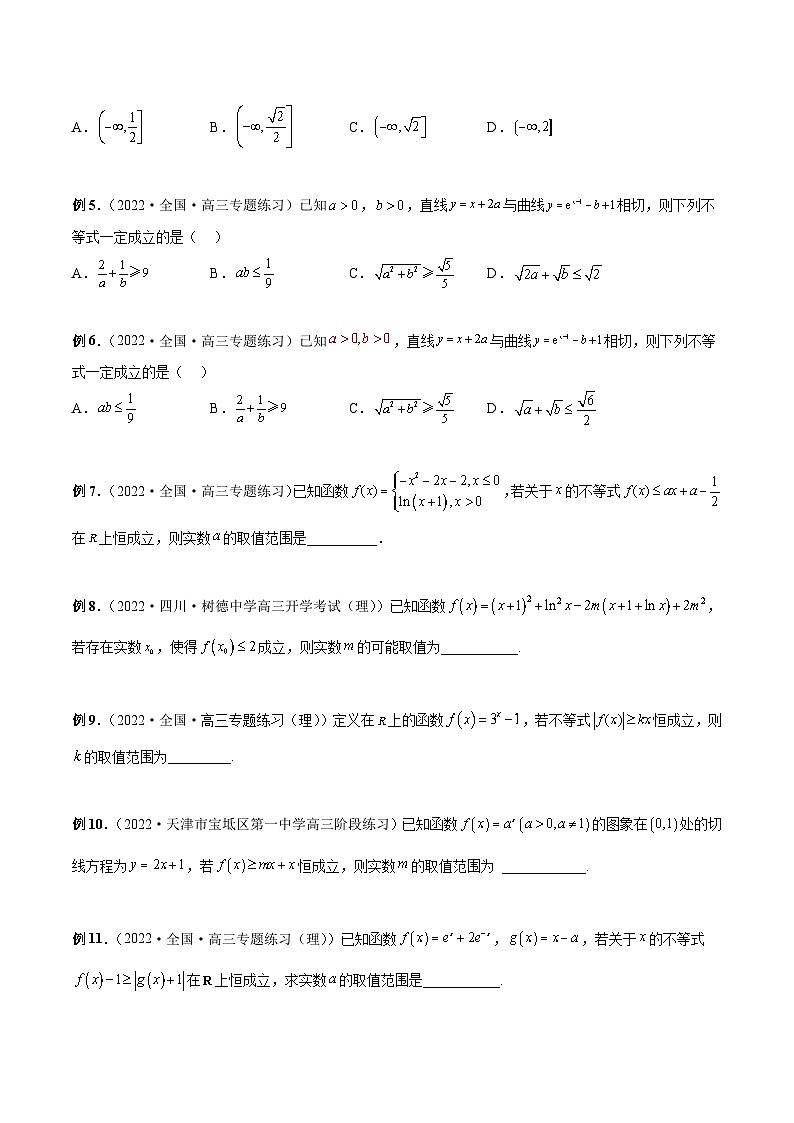 A. (−∞, 1/2]  B. (−∞, √2/2]  C. (−∞, √2]  D. (−∞, 2]
例5.（2022·全国·高三专题练习）已知 a > 0，b > 0，直线 y = x + 2a 与曲线 y = e^(x−1) − b + 1 相切，则下列不
等式一定成立的是（  ）
A. 2/a + 1/b ≥ 9  B. ab ≤ 1/9  C. √(a² + b²) ≥ √5/5  D. √(2a) + √b ≤ √2
例6.（2022·全国·高三专题练习）已知 a > 0, b > 0，直线 y = x + 2a 与曲线 y = e^(x−1) − b + 1 相切，则下列不等
式一定成立的是（  ）
A. ab ≤ 1/9  B. 2/a + 1/b ≥ 9  C. √(a² + b²) ≥ √5/5  D. √a + √b ≤ √6/2
例7.（2022·全国·高三专题练习）已知函数 f(x) = {−x² − 2x − 2, x ≤ 0; ln(x + 1), x > 0，若关于 x 的不等式 f(x) ≤ ax + a − 1/2
在 R 上恒成立，则实数 a 的取值范围是__________.
例8.（2022·四川·树德中学高三开学考试（理））已知函数 f(x) = (x + 1)² + ln² x − 2m(x + 1 + ln x) + 2m²，
若存在实数 x₀，使得 f(x₀) ≤ 2 成立，则实数 m 的可能取值为___________.
例9.（2022·全国·高三专题练习（理））定义在 R 上的函数 f(x) = 3^x − 1，若不等式 |f(x)| ≥ kx 恒成立，则
k 的取值范围为_________.
例10.（2022·天津市宝坻区第一中学高三阶段练习）已知函数 f(x) = a^x (a > 0, a ≠ 1) 的图象在 (0,1) 处的切
线方程为 y = 2x + 1，若 f(x) ≥ mx + x 恒成立，则实数 m 的取值范围为 ____________.
例11.（2022·全国·高三专题练习（理））已知函数 f(x) = e^x + 2e^(−x)，g(x) = x − a，若关于 x 的不等式
f(x) − 1 ≥ |g(x) + 1| 在 R 上恒成立，求实数 a 的取值范围是___________.